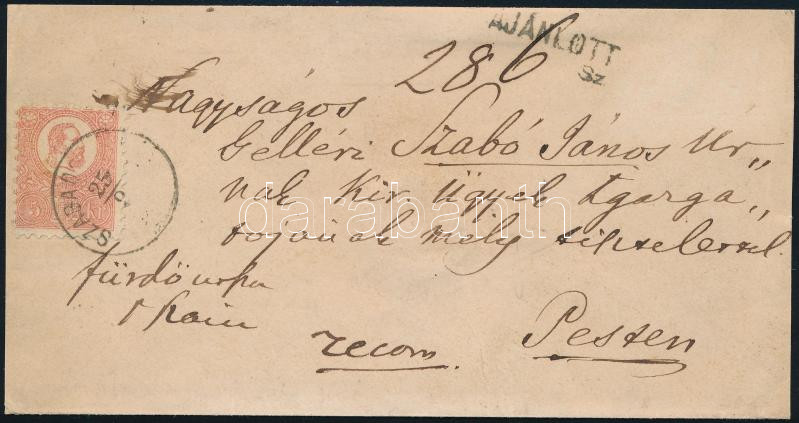 AJÁNLOTT
Sz
286
Nagyságos
Gelléri Szabó János Ur„
nak Kir. ügyek Igazga„
tojának mély tisztelettel
recom. Pesten
SZABAD
25
5
darabanth